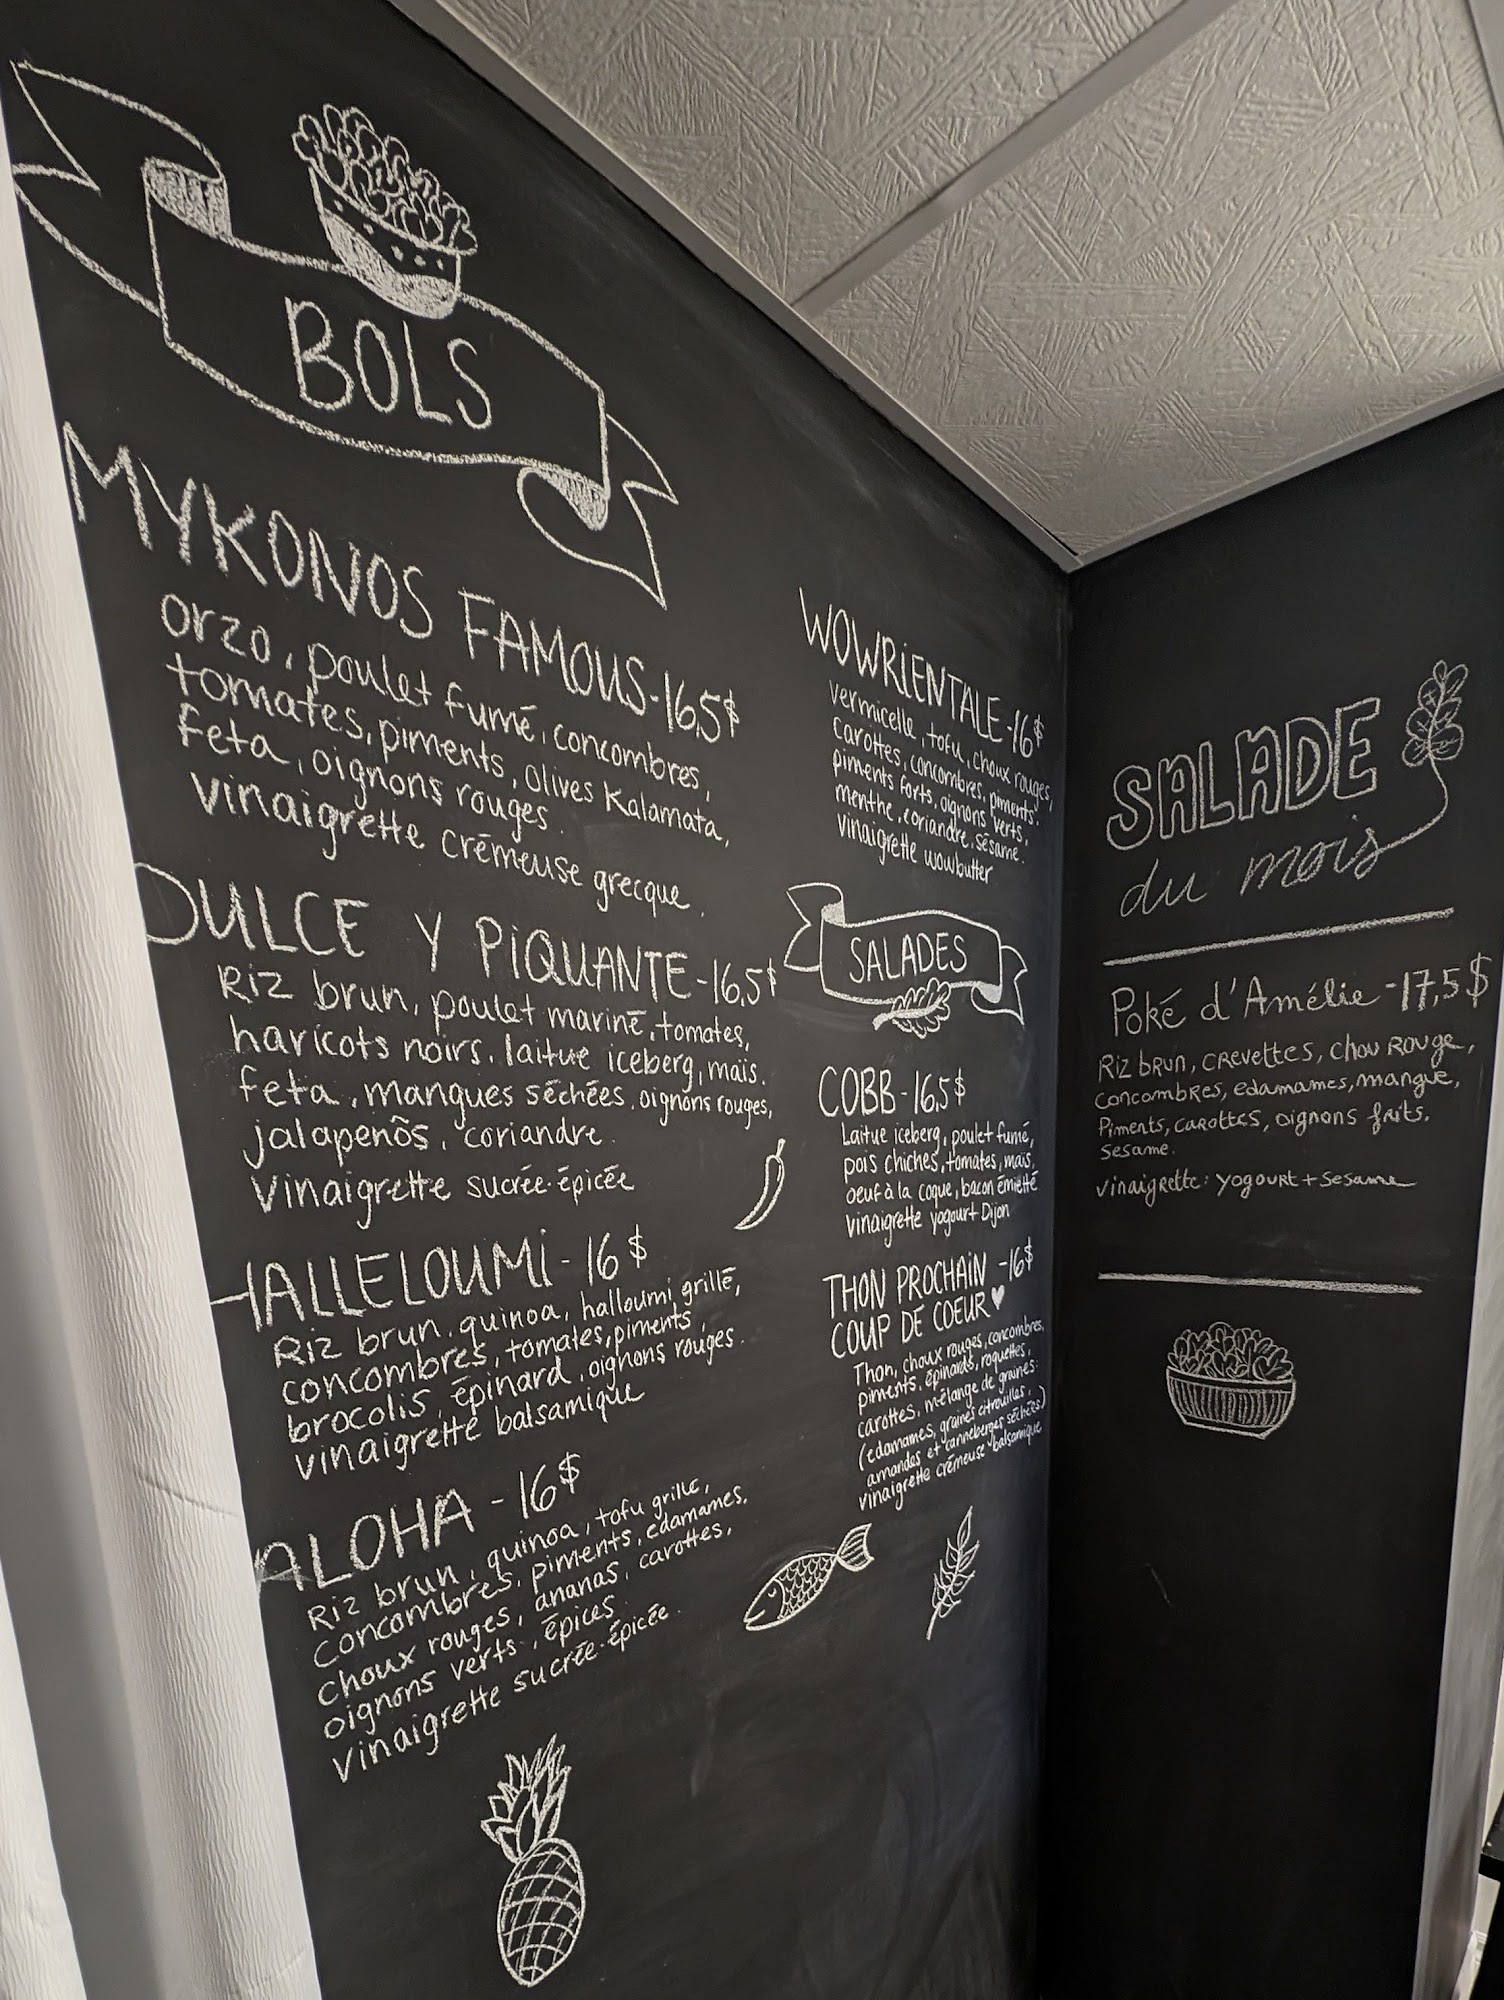 BOLS
MYKONOS FAMOUS-16,5$
orzo, poulet fumé, concombres,
tomates, piments, olives Kalamata,
feta, oignons rouges.
vinaigrette crémeuse grecque.
DULCE Y PIQUANTE-16,5$
Riz brun, poulet mariné, tomates,
haricots noirs, laitue iceberg, maïs.
feta, mangues séchées, oignons rouges,
jalapenõs, coriandre.
Vinaigrette sucrée-épicée
HALLELOUMI-16$
Riz brun, quinoa, halloumi grillé,
concombres, tomates, piments,
brocolis, épinard, oignons rouges.
vinaigrette balsamique
ALOHA-16$
Riz brun, quinoa, tofu grillé,
concombres, piments, edamames,
choux rouges, ananas, carottes,
oignons verts, épices.
vinaigrette sucrée-épicée.
WOWRIENTALE-16$
vermicelle, tofu, choux rouges,
carottes, concombres, piments,
piments forts, oignons verts,
menthe, coriandre, sésame.
vinaigrette wowbutter
SALADES
COBB-16,5$
Laitue iceberg, poulet fumé,
pois chiches, tomates, maïs,
oeuf à la coque, bacon émietté
vinaigrette yogourt Dijon
THON PROCHAIN -16$
COUP DE COEUR♥
Thon, choux rouges, concombres,
piments, épinards, roquettes,
carottes, mélange de graines:
(edamames, graines citrouilles,
amandes et canneberges séchées)
vinaigrette crémeuse balsamique
SALADE
du mois
Poké d'Amélie -17,5$
Riz brun, crevettes, chou rouge,
concombres, edamames, mangue,
Piments, carottes, oignons frits.
sesame.
vinaigrette: yogourt + sesame